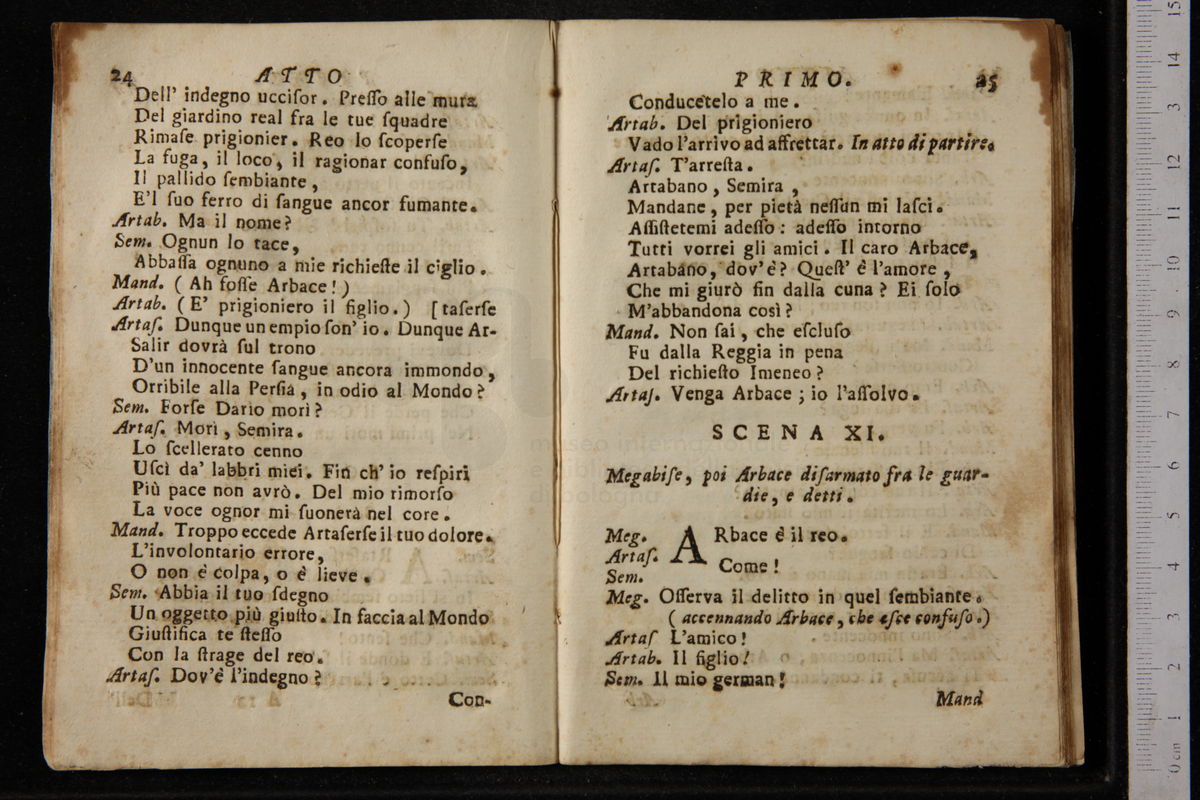 24 ATTO
Dell' indegno ucciſor. Preſſo alle mura
Del giardino real fra le tue ſquadre
Rimaſe prigionier. Reo lo ſcoperſe
La fuga, il loco, il ragionar confuſo,
Il pallido ſembiante,
E'l ſuo ferro di ſangue ancor fumante.
Artab. Ma il nome?
Sem. Ognun lo tace,
Abbaſſa ognuno a mie richieſte il ciglio.
Mand. ( Ah foſſe Arbace! )
Artab. ( E' prigioniero il figlio. ) [taſerſe
Artaſ. Dunque un empio ſon' io. Dunque Ar-
Salir dovrà ſul trono
D'un innocente ſangue ancora immondo,
Orribile alla Perſia, in odio al Mondo?
Sem. Forſe Dario morì?
Artaſ. Morì, Semira.
Lo ſcellerato cenno
Uſcì da' labbri miei. Fin ch' io reſpiri
Più pace non avrò. Del mio rimorſo
La voce ognor mi ſuonerà nel core.
Mand. Troppo eccede Artaſerſe il tuo dolore.
L'involontario errore,
O non è colpa, o è lieve.
Sem. Abbia il tuo ſdegno
Un oggetto più giuſto. In faccia al Mondo
Giuſtifica te ſteſſo
Con la ſtrage del reo.
Artaſ. Dov'è l'indegno?
Con-
PRIMO. 25
Conducetelo a me.
Artab. Del prigioniero
Vado l'arrivo ad affrettar. In atto di partire.
Artaſ. T'arreſta.
Artabano, Semira,
Mandane, per pietà neſſun mi laſci.
Aſſiſtetemi adeſſo: adeſſo intorno
Tutti vorrei gli amici. Il caro Arbace,
Artabano, dov'è? Queſt' è l'amore,
Che mi giurò fin dalla cuna? Ei ſolo
M'abbandona così?
Mand. Non ſai, che eſcluſo
Fu dalla Reggia in pena
Del richieſto Imeneo?
Artaſ. Venga Arbace; io l'aſſolvo.
SCENA XI.
Megabiſe, poi Arbace diſarmato fra le guar-
die, e detti.
Meg. ARbace è il reo.
Artaſ.
Sem. Come!
Meg. Oſſerva il delitto in quel ſembiante.
( accennando Arbace, che eſce confuſo. )
Artaſ L'amico!
Artab. Il figlio!
Sem. Il mio german!
Mand